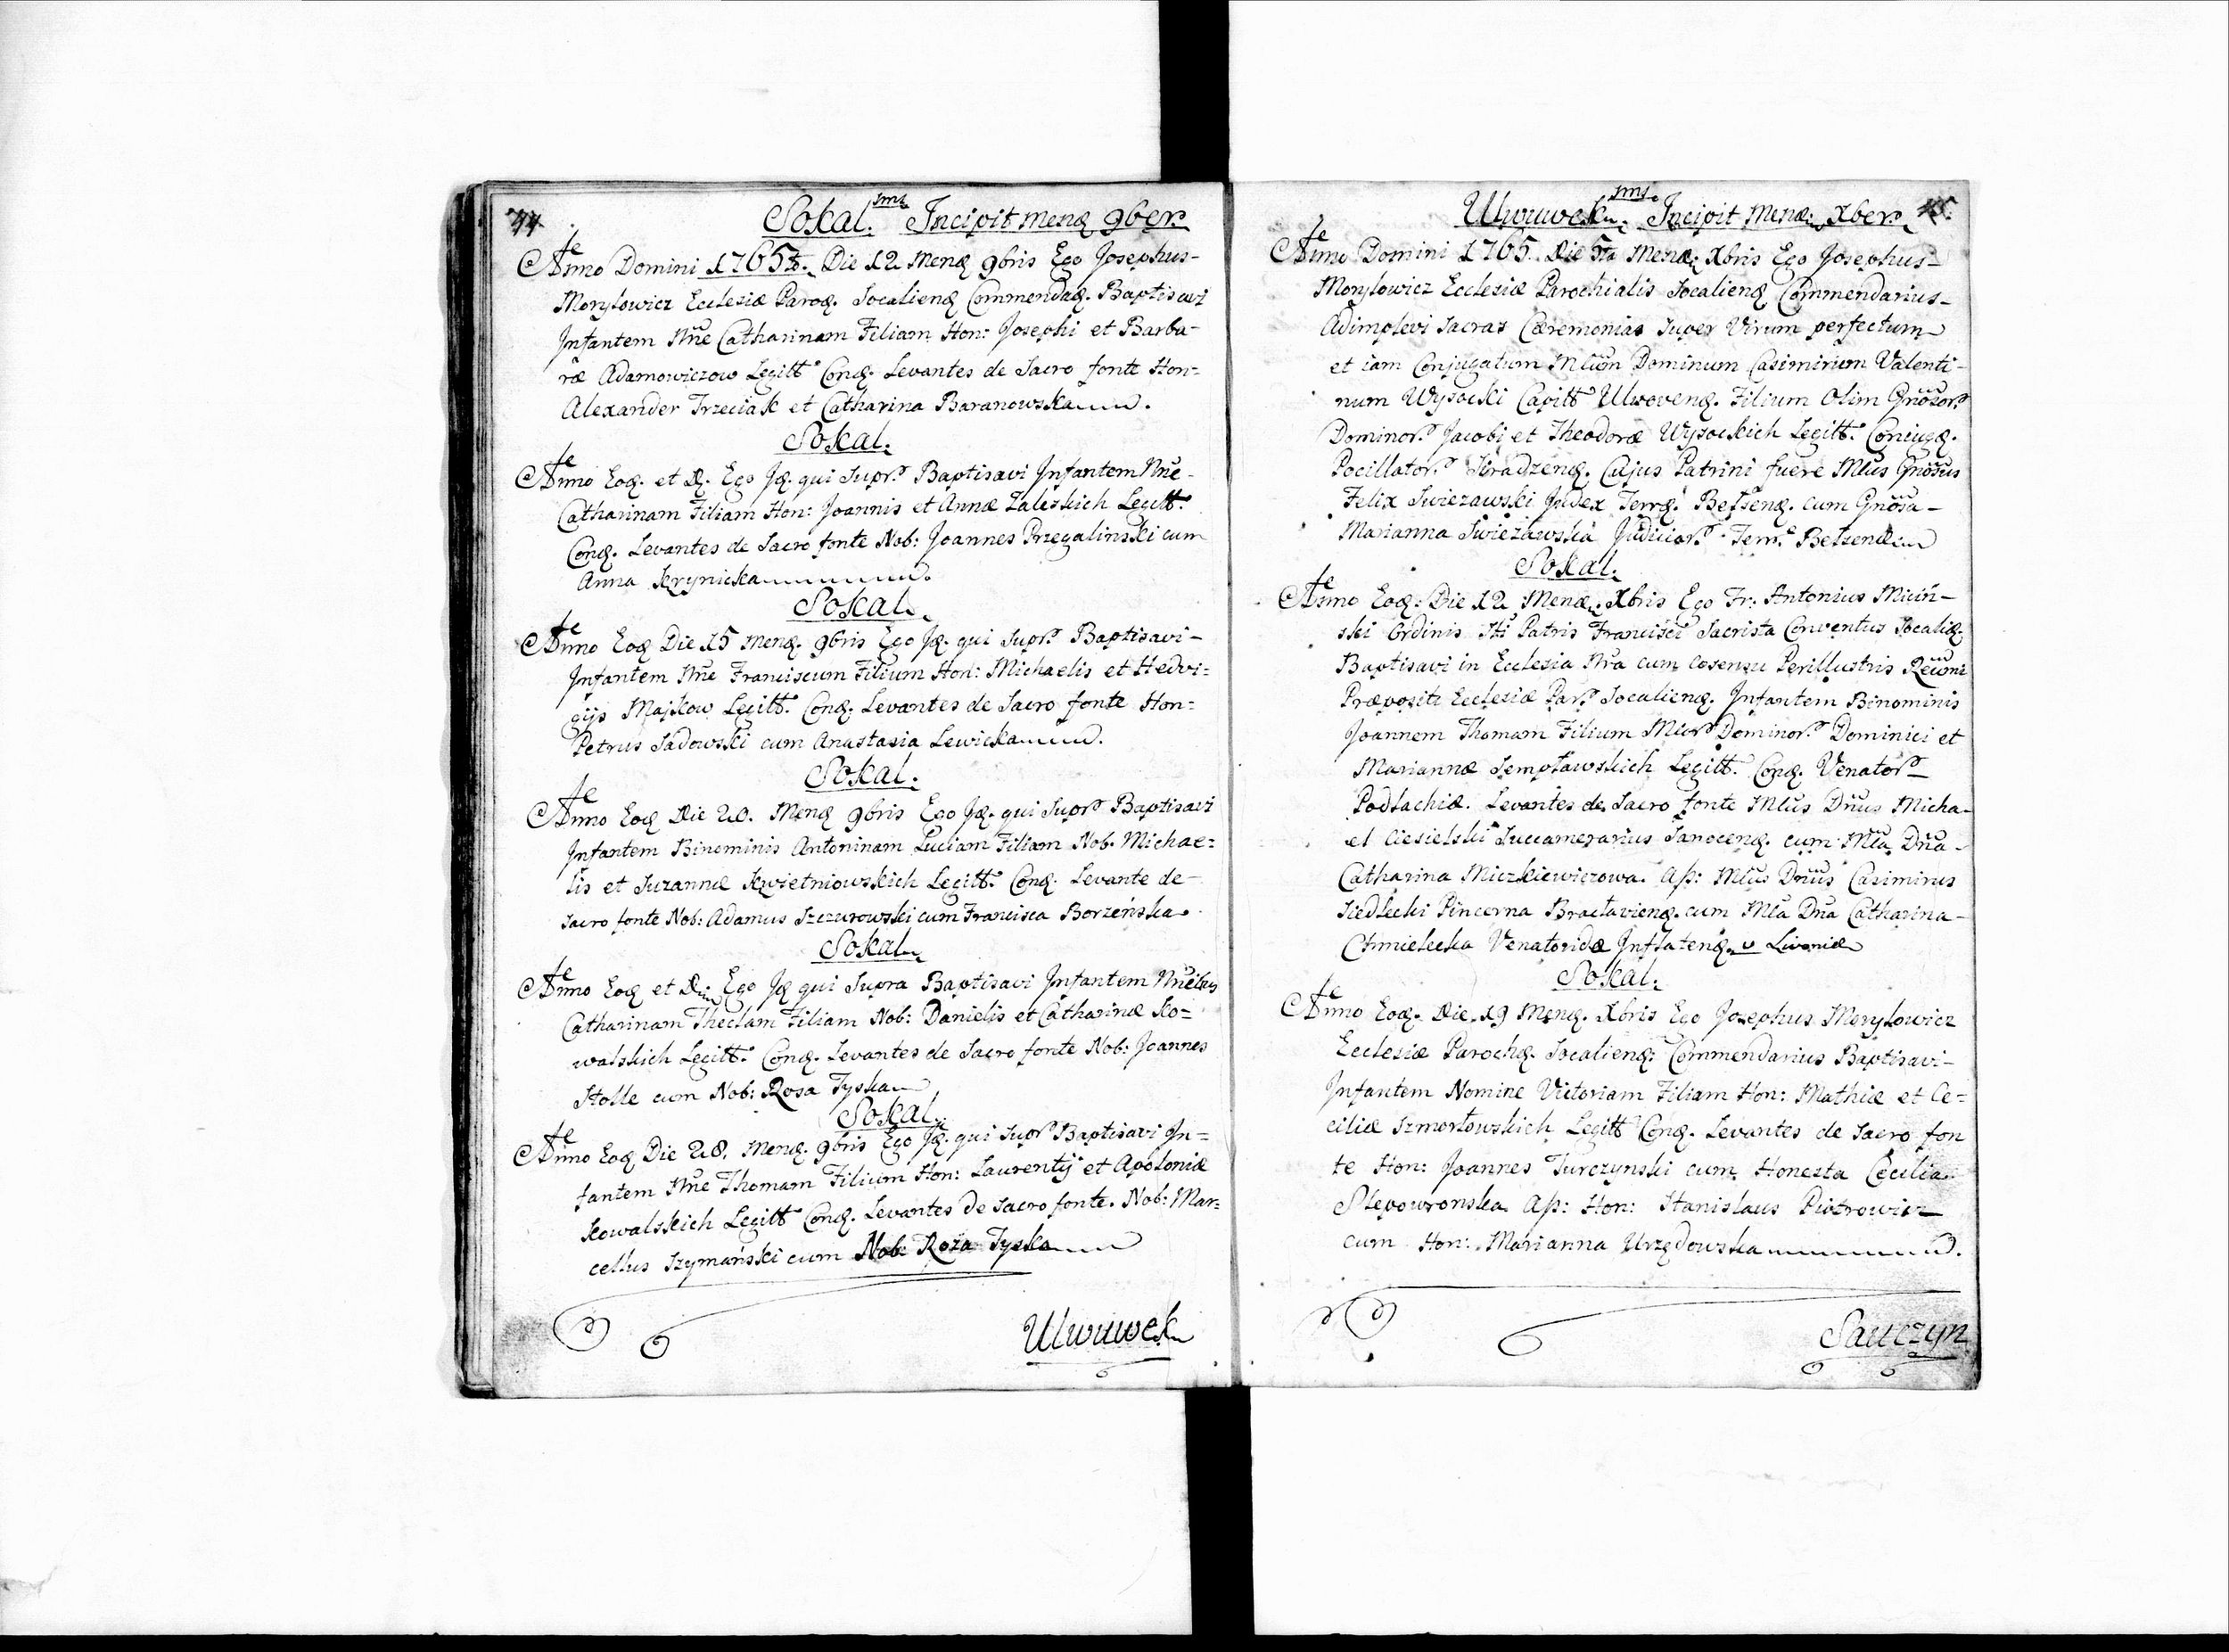 44.
Sokal. Incipit Menq 9ber.
Anno Domini 1765to. Die 12 Menq 9bris Ego Josephus
Morylowicz Ecclesiæ Paroq. Socalienq Commendaq. Baptisavi
Infantem Nne Catharinam Filiam Hon: Josephi et Barba-
ræ Adamowiczow Legitt. Conq. Levantes de Sacro fonte Hon-
Alexander Trzeciak et Catharina Baranowska.
Sokal.
Anno Eoq. et D. Ego Jq. qui Supr. Baptisavi Infantem Nne
Catharinam Filiam Hon: Joannis et Annæ Zaleskich Legitt.
Conq. Levantes de Sacro fonte Nob: Joannes Przegalinski cum
Anna Krynicka.
Sokal.
Anno Eoq Die 15 Menq. 9bris Ego Jq. qui Supr. Baptisavi
Infantem Nne Franciscum Filium Hon: Michaelis et Hedvi=
gijs Majkow Legitt. Conq. Levantes de Sacro fonte Hon=
Petrus Sadowski cum Anastasia Lewicka.
Sokal.
Anno Eoq Die 20. Menq 9bris Ego Jq. qui Supr. Baptisavi
Infantem Binominis Antoninam Luciam Filiam Nob. Michae=
lis et Suzannæ Kwietniowskich Legitt. Conq. Levante de
Sacro fonte Nob: Adamus Szczurowski cum Francisca Borzeńska.
Sokal.
Anno Eoq et D. Ego Jq qui Supra Baptisavi Infantem Nnibus
Catharinam Theclam Filiam Nob: Danielis et Catharinæ Ko=
walskich Legitt. Conq. Levantes de Sacro fonte Nob: Joannes
Stolle cum Nob: Rosa Tyska
Sokal.
Anno Eoq Die 28. Menq. 9bris Ego Jq. qui Supr. Baptisavi In=
fantem Nne Thomam Filium Hon: Laurentij et Apoloniæ
Kowalskich Legitt Conq. Levantes de Sacro fonte. Nob: Mar=
cellus Szymański cum Nob: Roza Tyska
Uhwuwek
45.
Uhwuwek. Incipit Menq. Xber.
Anno Domini 1765. Die 5ta Menq. Xbris Ego Josephus
Morylowicz Ecclesiæ Parochialis Socalienq Commendarius
Adimplevi Sacras Cæremonias Super Virum perfectum
et iam Conjugatum Mlum Dominum Casimirum Valenti-
num Wysocki Capitt Uhwovenq. Filium Olim Gnosor.
Dominor. Jacobi et Theodoræ Wysockich Legitt. Coniugq.
Pocillator. Siradzenq. Cujus Patrini fuere Mlus Gnosus
Felix Swiezawski Judex Terrq. Belsenq. cum Gnosa
Marianna Swieżawska Judicior. Terr. Belzenq
Sokal.
Anno Eoq: Die 12 Menq. Xbris Ego Fr: Antonius Micin-
ski Ordinis Sti Patris Francisci Sacrista Conventus Socaliq.
Baptisavi in Ecclesia Nra cum Cosensu Perillustris Rewni
Præpositi Ecclesiæ Par. Socalienq. Infantem Binominis
Joannem Thomam Filium Mlor. Dominor. Dominici et
Mariannæ Sempławskich Legitt. Conq. Venator.
Podlachiæ. Levantes de Sacro fonte Mlus Dnus Micha-
el Ciesielski Succamerarius Sanocenq. cum Mla Dna
Catharina Miczkiewiczowa. Aſs: Mlus Dnus Casimirus
Siedlecki Pincerna Bracłavienq. cum Mla Dna Catharina
Chmielecka Venatoridæ Inflatenq. v Livoniæ
Sokal.
Anno Eoq. Die. 19 Menq. Xbris Ego Josephus Morylowicz
Ecclesiæ Parochq. Socalienq: Commendarius Baptisavi
Infantem Nomine Victoriam Filiam Hon: Mathiæ et Ce=
ciliæ Szmorłowskich Legitt Conq. Levantes de Sacro fon
te Hon: Joannes Turczynski cum Honesta Cecilia
Slepowronska Aſs: Hon: Stanislaus Piotrowicz
cum Hon: Marianna Urzędowska.
Sawczyn